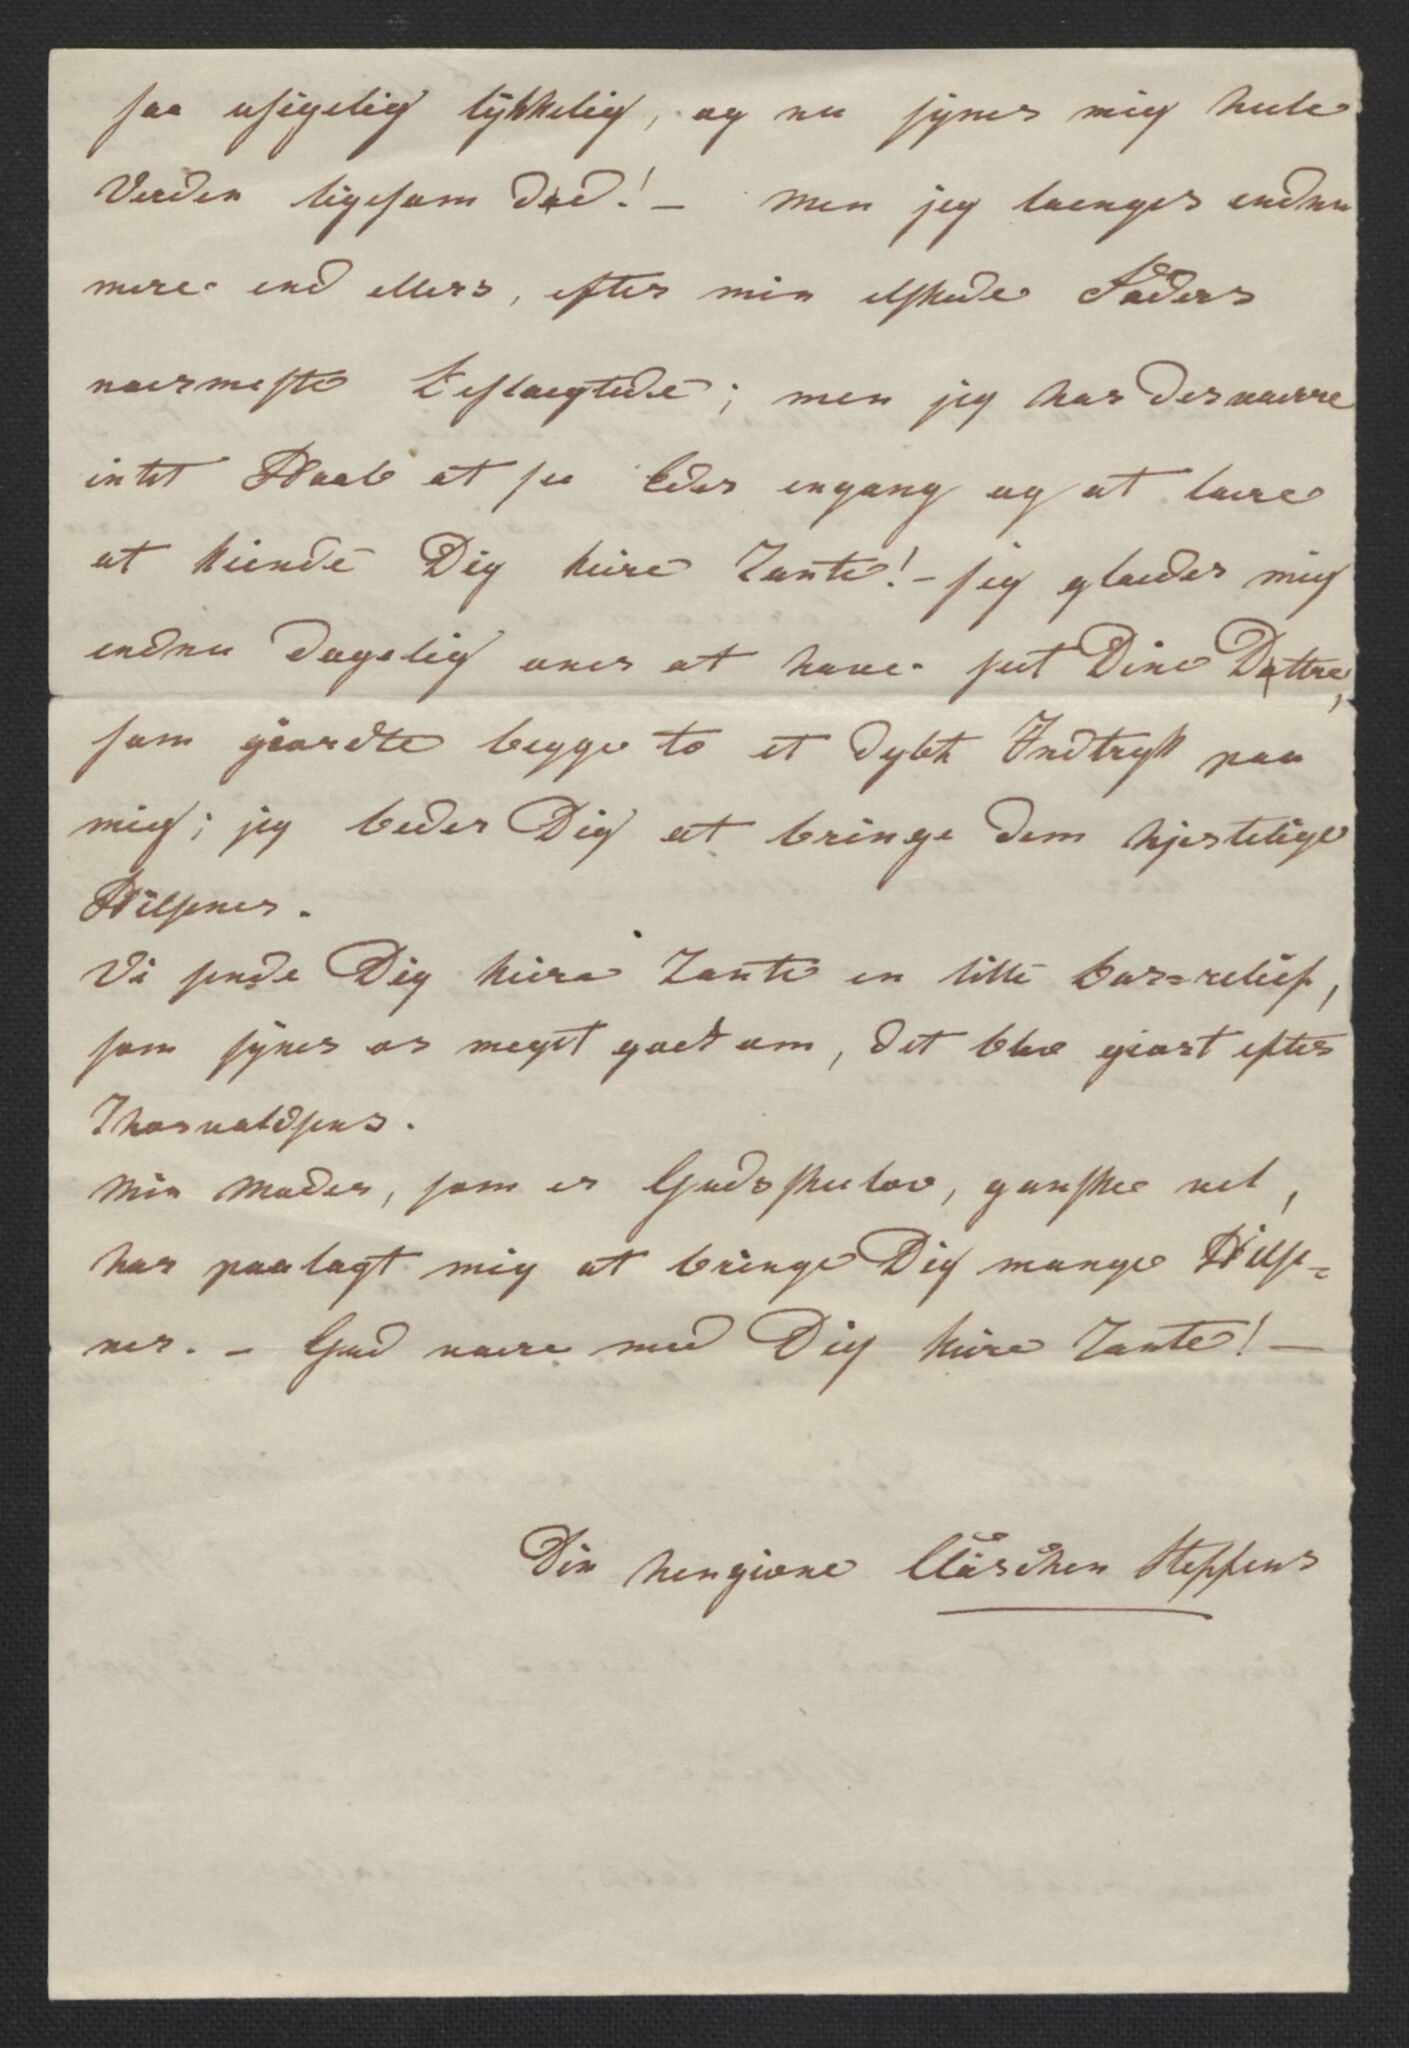 saa usigelig lykkelig, og nu synes mig hele
Verden ligesom død! - Men jeg laenges endnu
mere end ellers, efter min elskede Faders
naermeste Beslaegtede; men jeg har desvaerre
intet Haab at see Eder engang og at laere
at kiende Dig kiere Tante! - jeg glaeder mig
endnu dagelig over at have seet Dine Døttre,
som giordte begge to et dybt Indtryk paa
mig; jeg beder Dig at bringe dem hjertelige
Hilsener.
Vi sende Dig kiere Tante en lille bas=relief,
som synes os meget godt om, det blev giort efter
Thorvaldsens.
Min Moder, som er Gudskeelov, ganske vel,
har paalagt mig at bringe Dig mange Hilse=
ner. - Gud vaere med Dig kiere Tante! -
Din hengivne Clärchen Steffens